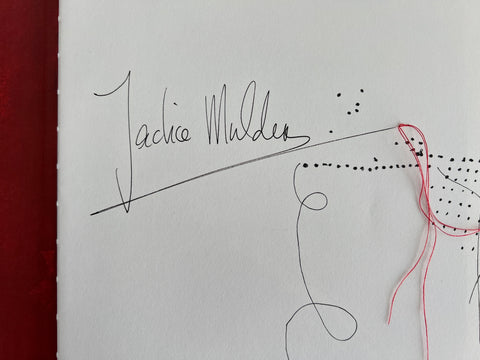 Jackie Mulder